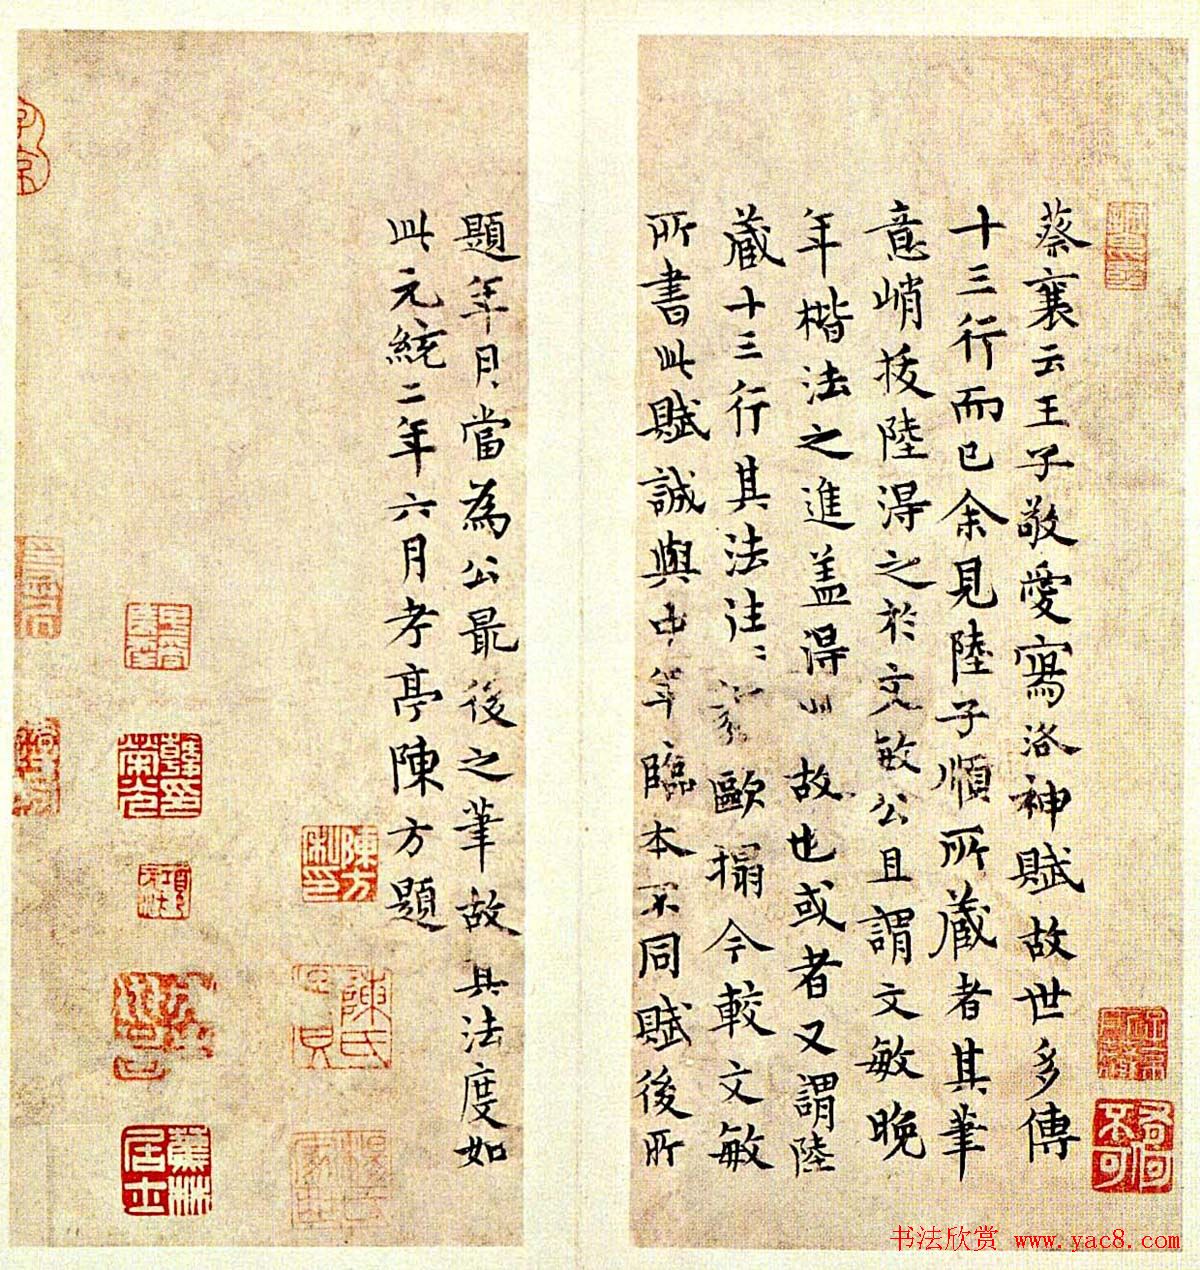 蔡襄云王子敬愛寫洛神賦故世多傳
十三行而已余見陸子順所藏者其筆
意峭拔陸得之於文敏公且謂文敏晚
年楷法之進盖得此故也或者又謂陸
藏十三行其法往往歐搨今較文敏
所書此賦誠與中年臨本不同賦後所
題年月當為公最後之筆故其法度如
此元統二年六月孝亭陳方題
陳方
私印
陳氏
蕉林
居士
書法欣赏 www.yac8.com